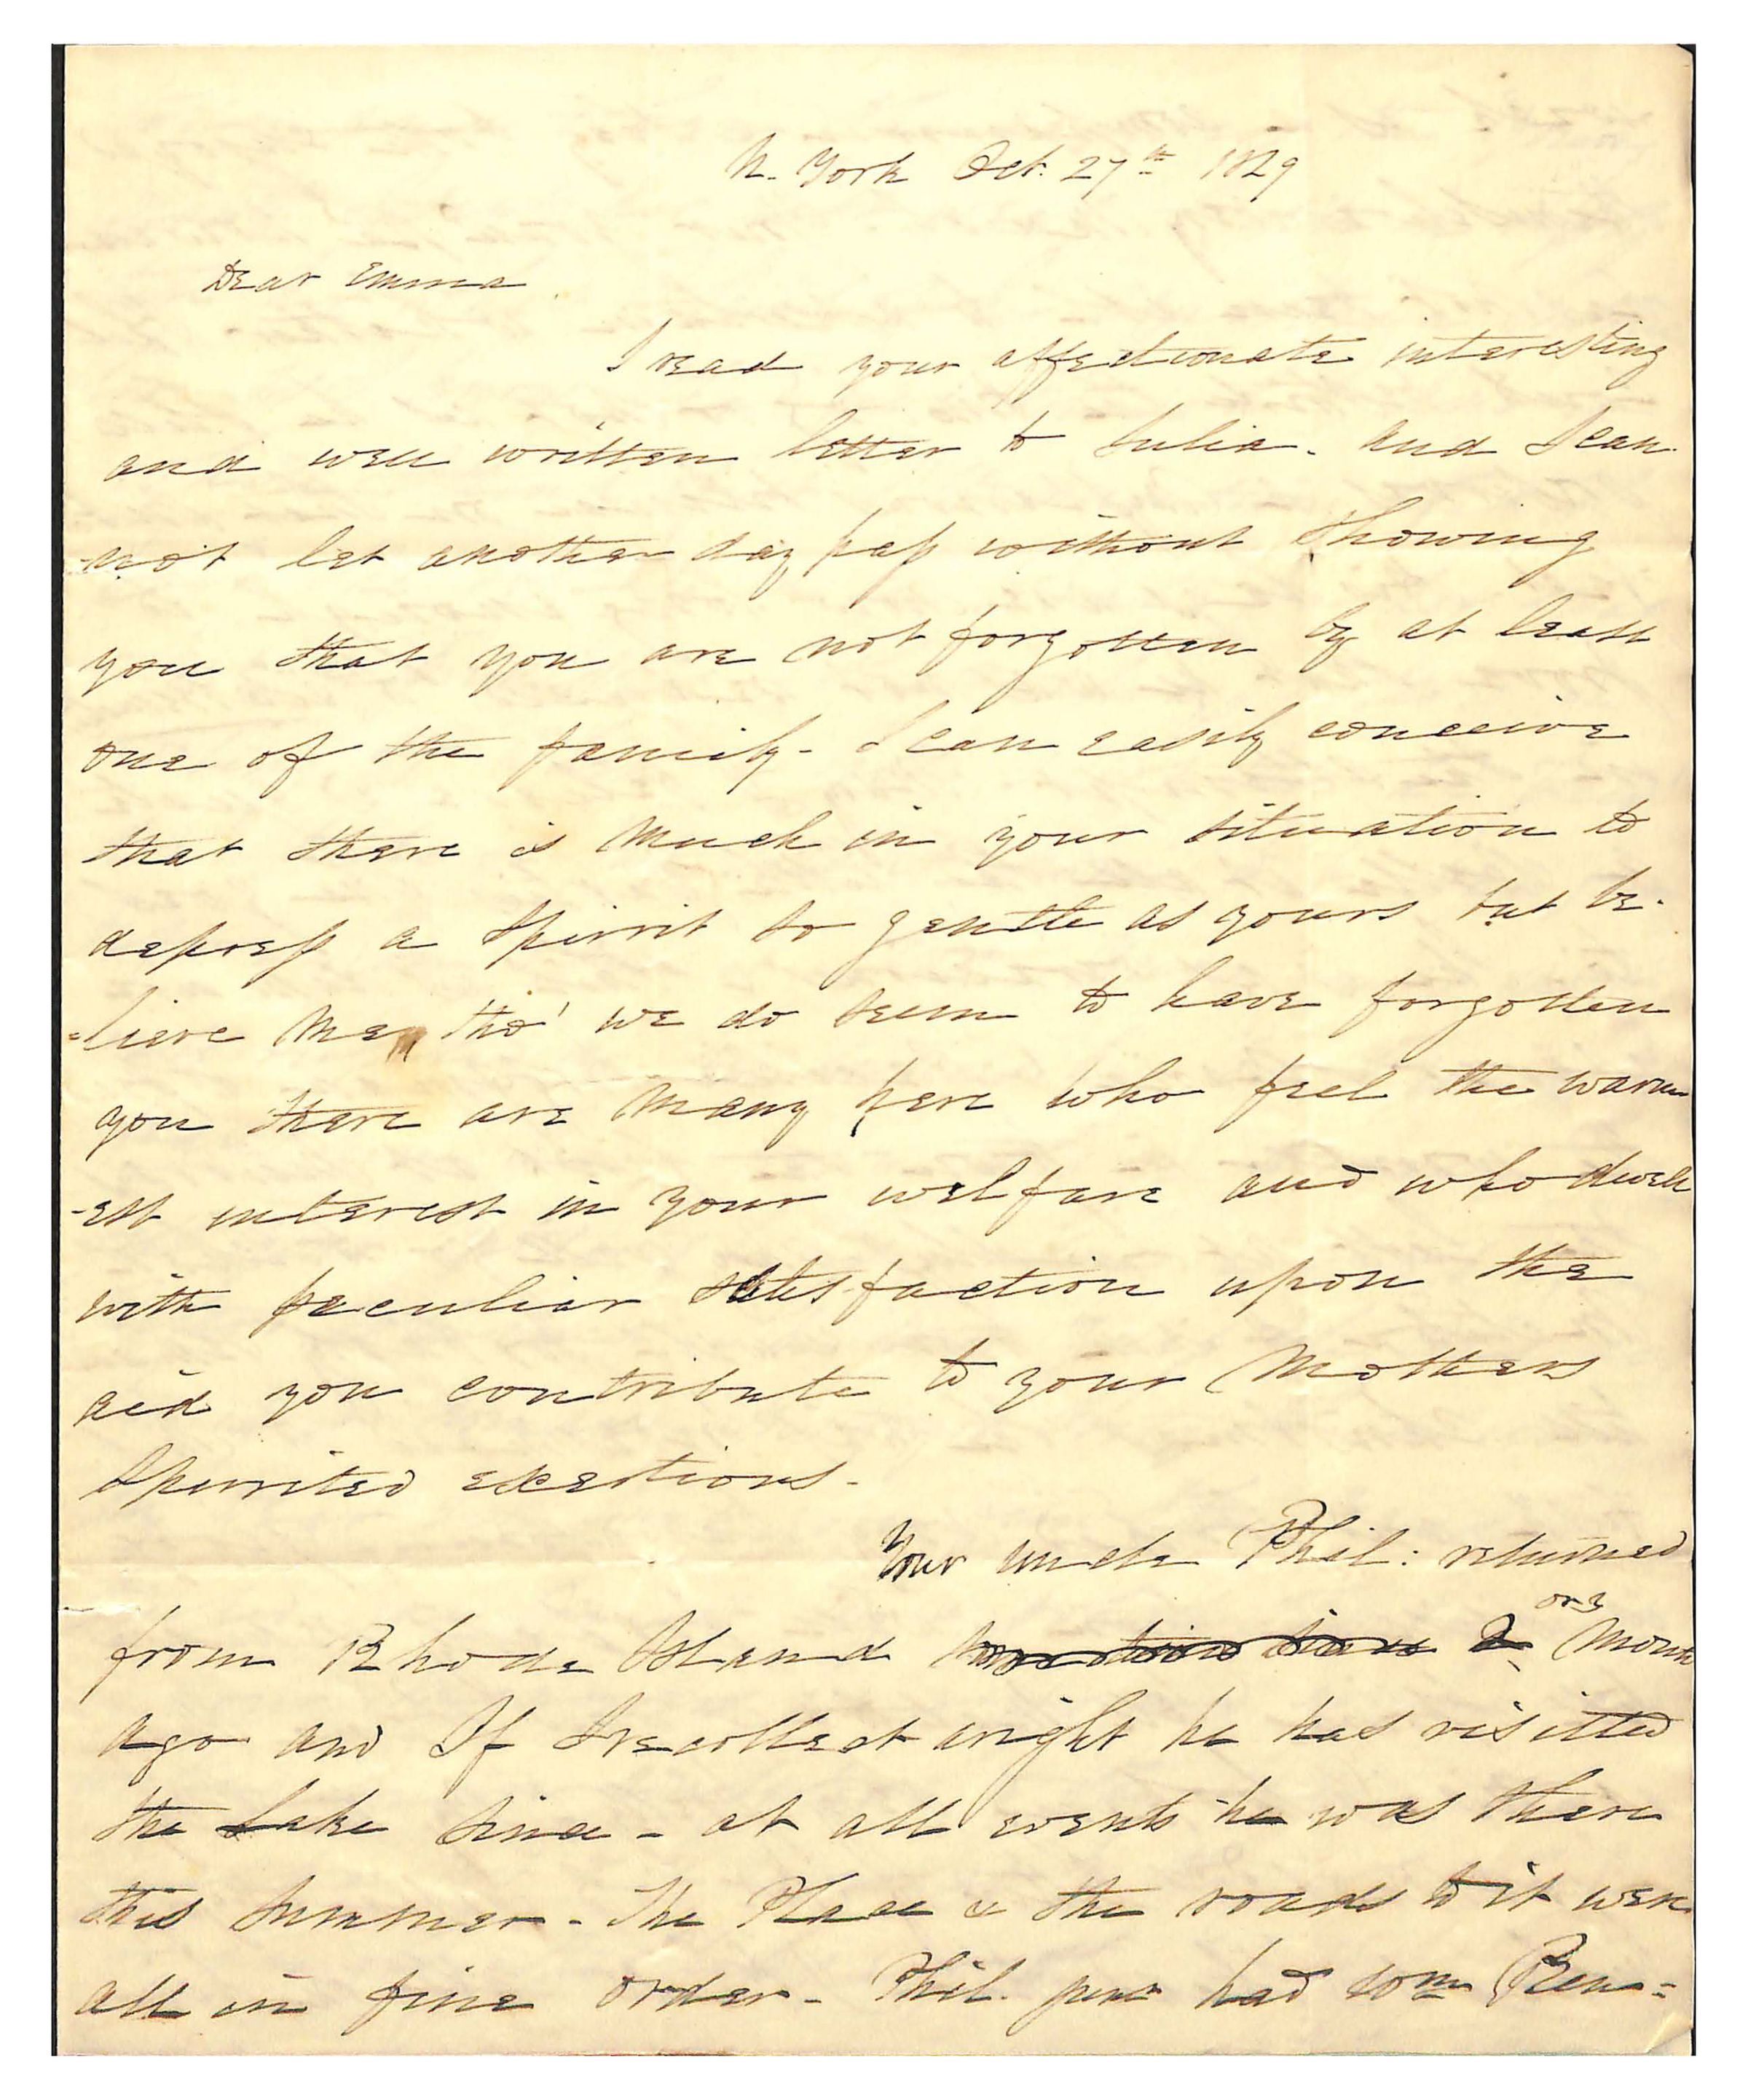 N. York Oct. 27th 1829
Dear Emma
I read your affectionate interesting
and well written letter to Julia. and I can
-not let another day pass without showing
you that you are not forgotten by at least
one of the family - I can easily conceive
that there is much in your situation to
depress a spirit so gentle as yours but be-
=lieve me tho' we do seem to have forgotten
you there are many here who feel the warm
-est interest in your welfare and who dwell
with peculiar satisfaction upon the
aid you contribute to your Mothers
spirrited exertions -
Your uncle Phil: returned
from Rhode Island 2 or 3 Month
ago and If I recollect wright he has visitted
the Lake since - at all events he was there
this summer - The Place & the roads to it were
all in fine order - Phil. had some Ren=